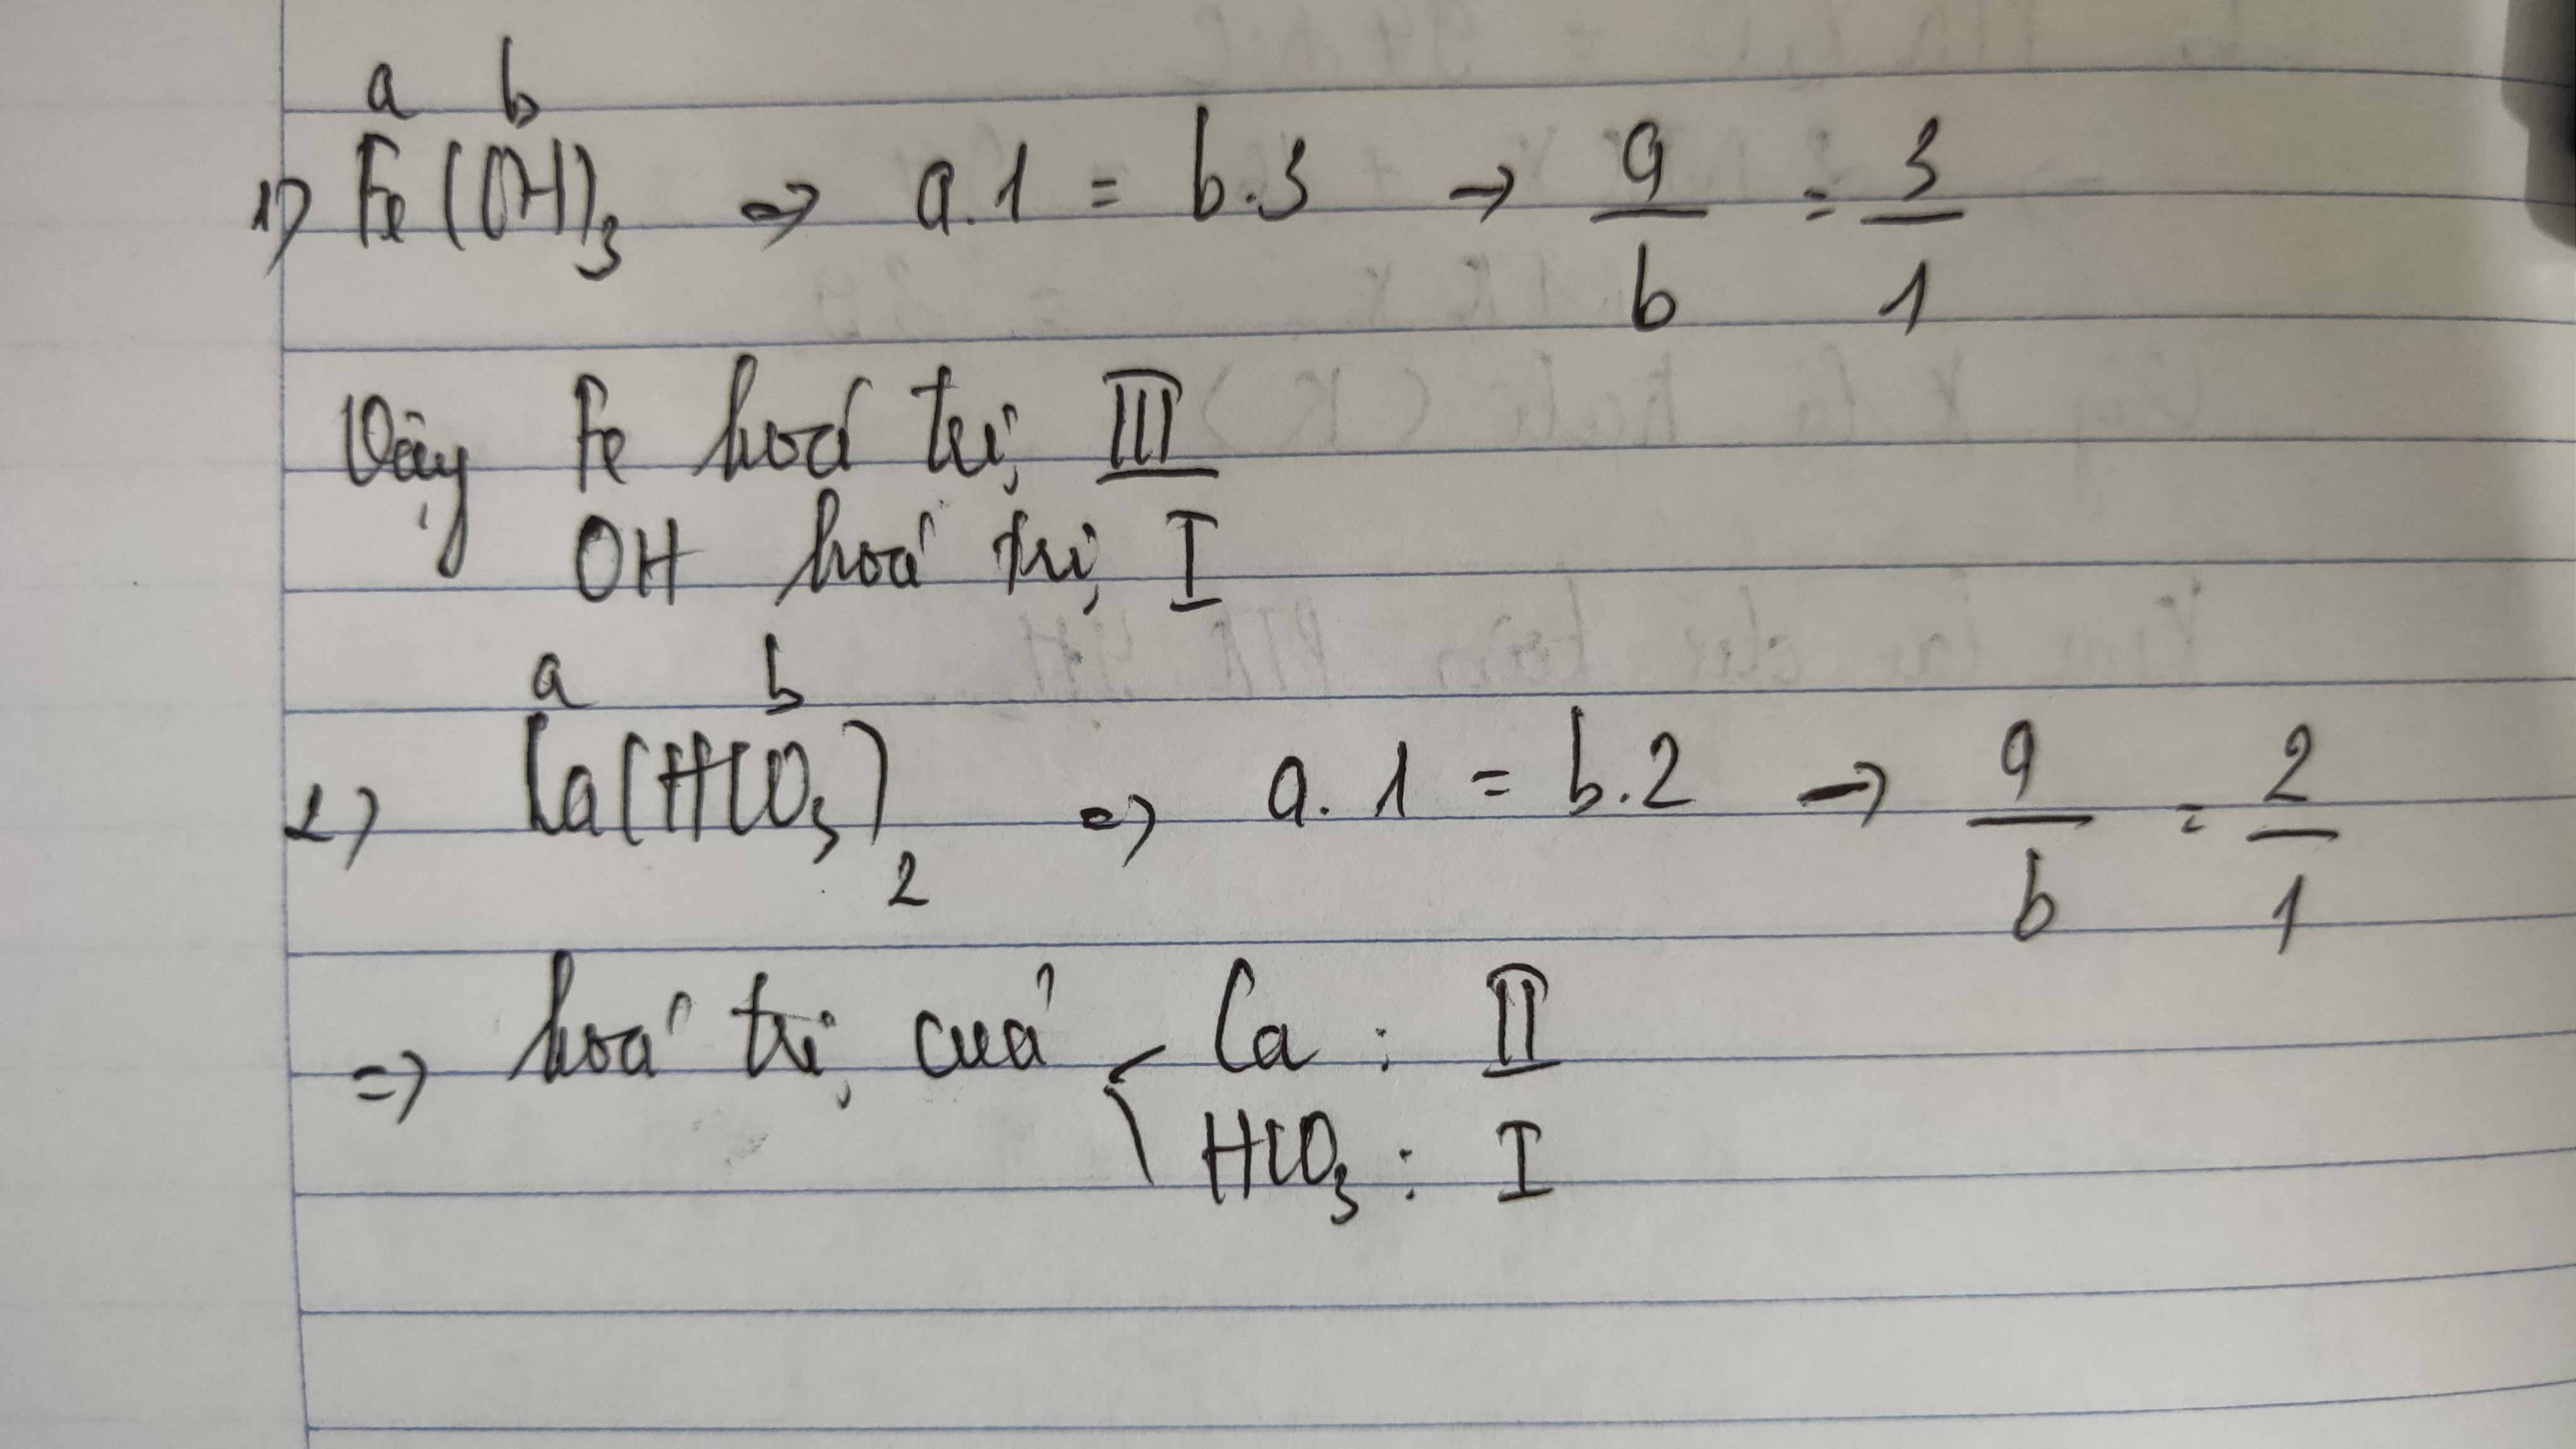 a b
1) Fe(OH)₃ => a.1 = b.3 → a/b = 3/1
Vậy Fe hoá trị III
OH hoá trị I
a b
2) Ca(HCO₃)₂ => a.1 = b.2 → a/b = 2/1
=> hoá trị của { Ca : II
HCO₃ : I